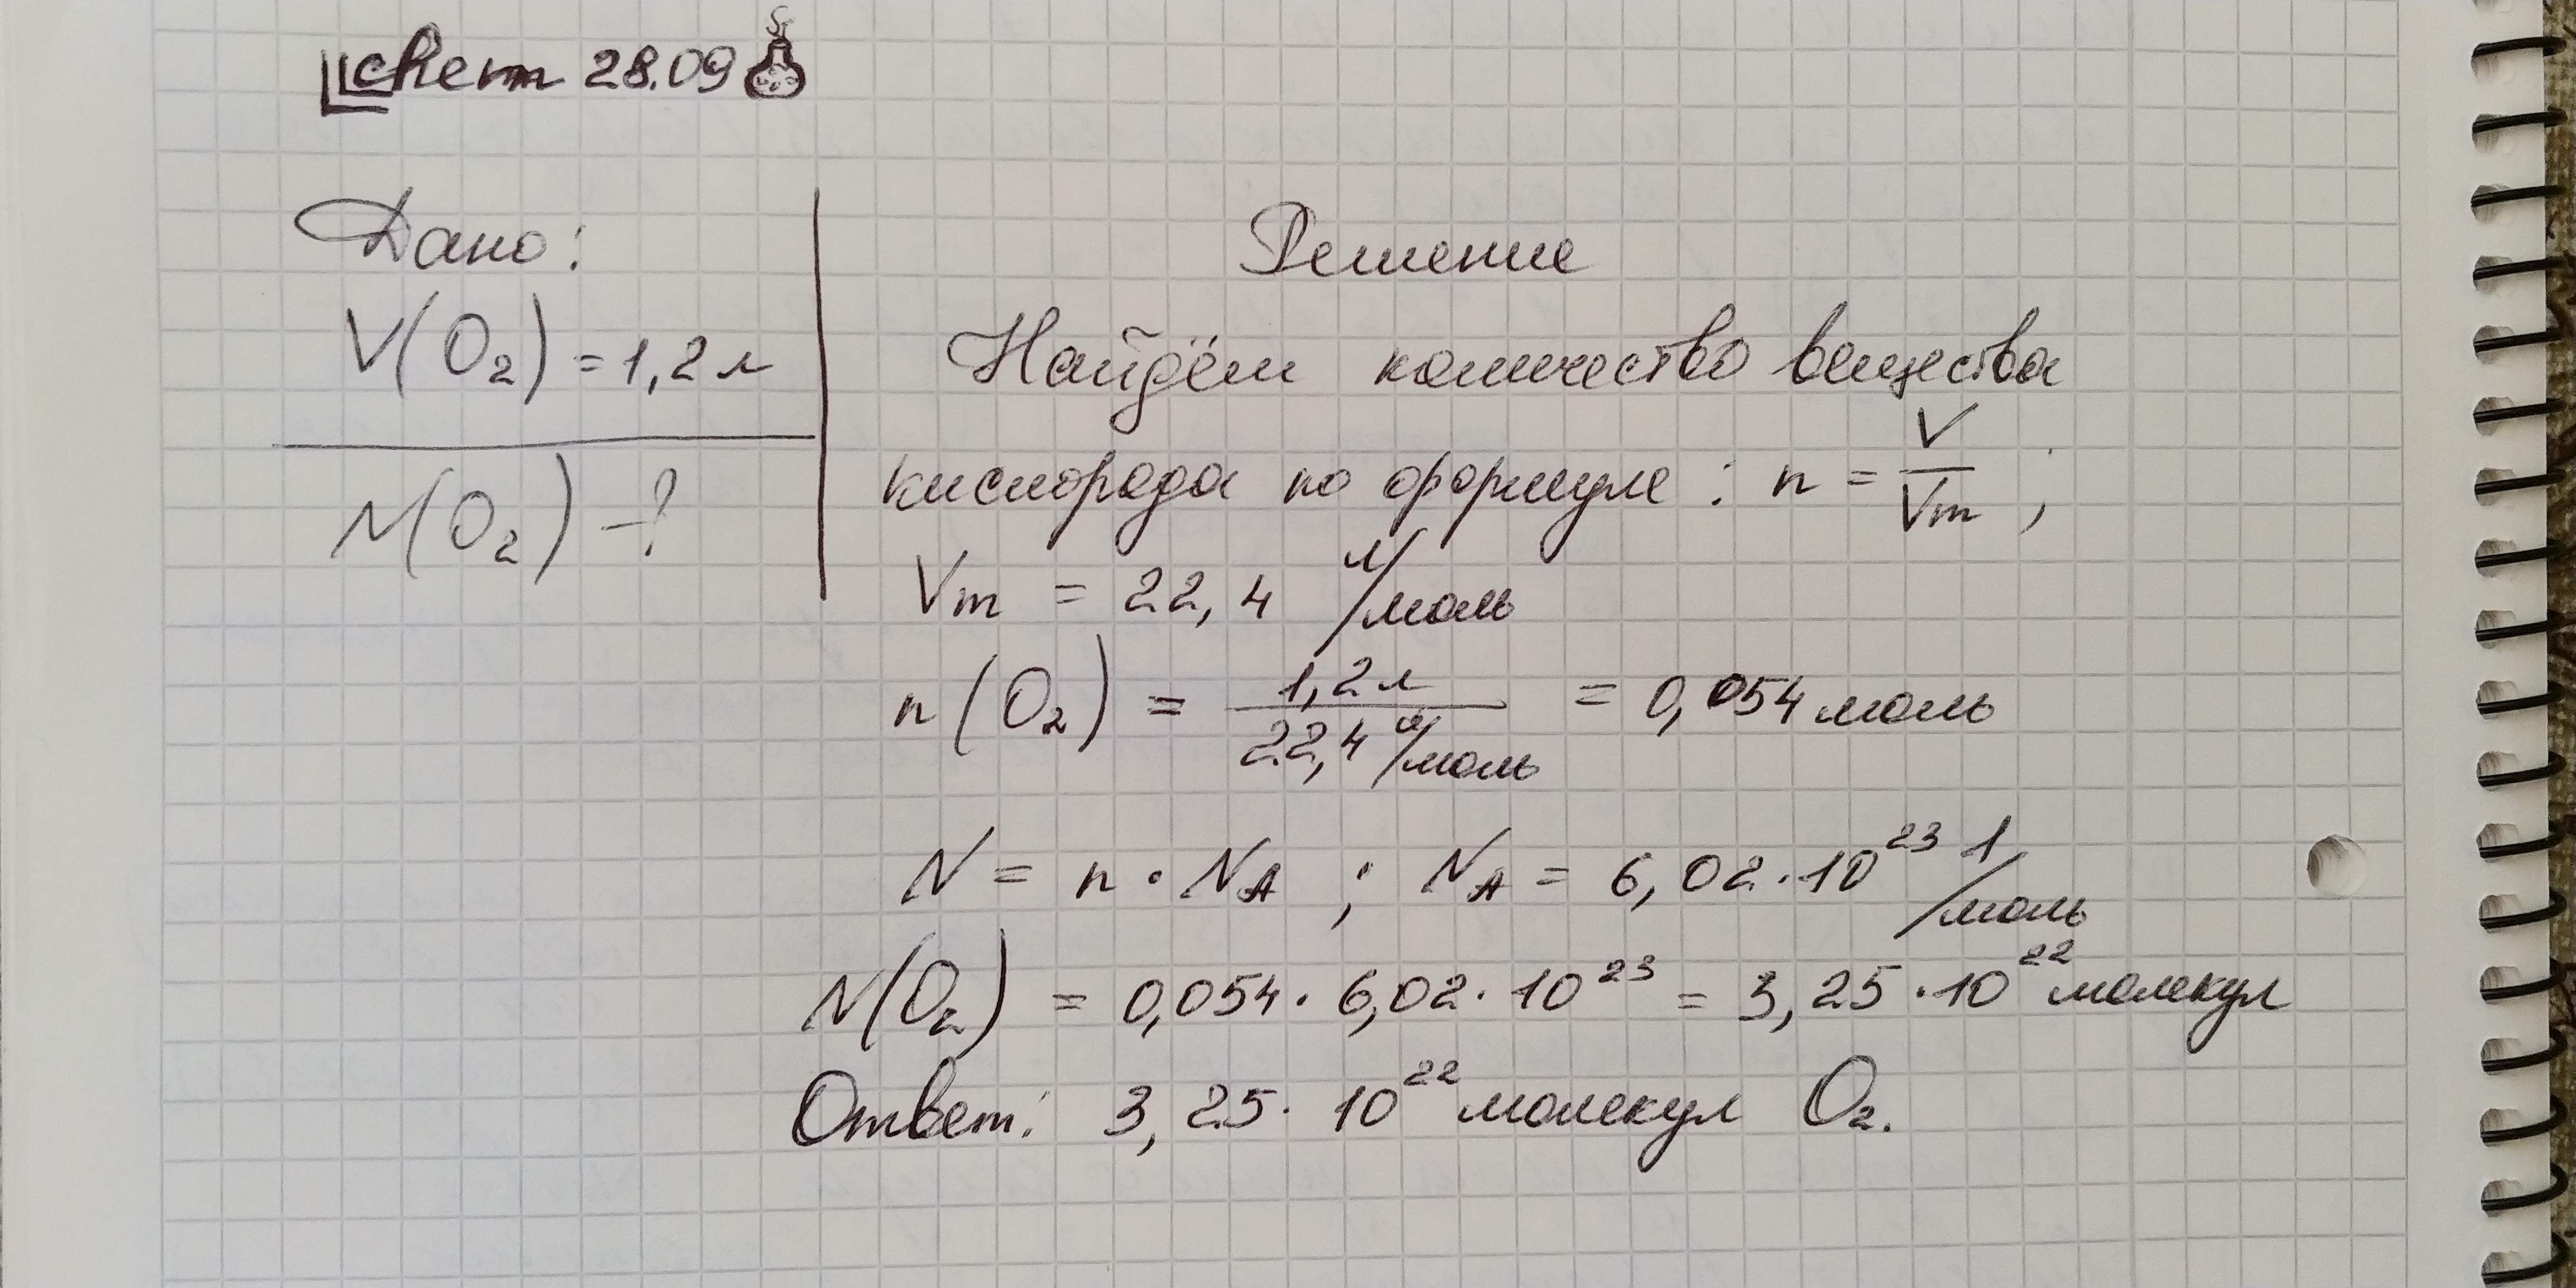 chem 28.09
Дано:
V(O₂) = 1,2 л
N(O₂) - ?
Решение
Найдём количество вещества
кислорода по формуле: n = V/Vm ;
Vm = 22,4 л/моль
n(O₂) = 1,2 л / 22,4 л/моль = 0,054 моль
N = n · N_A ; N_A = 6,02 · 10²³ 1/моль
N(O₂) = 0,054 · 6,02 · 10²³ = 3,25 · 10²² молекул
Ответ: 3,25 · 10²² молекул O₂.